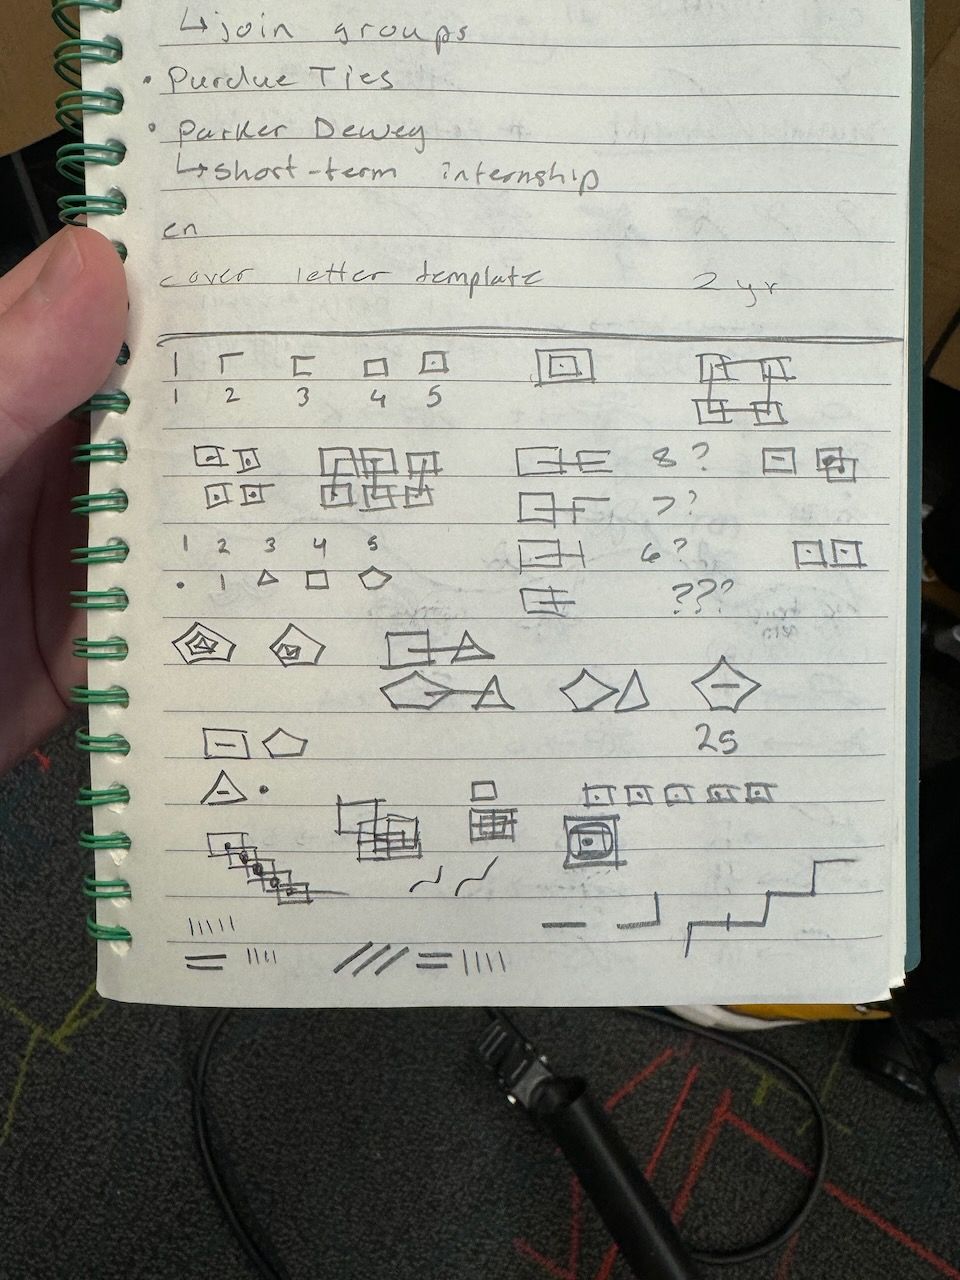 ↳join groups
• Purdue Ties
• Parker Dewey
↳short-term internship
en
cover letter template 2 yr
1 2 3 4 5
8 ?
7?
1 2 3 4 5
6 ?
???
25